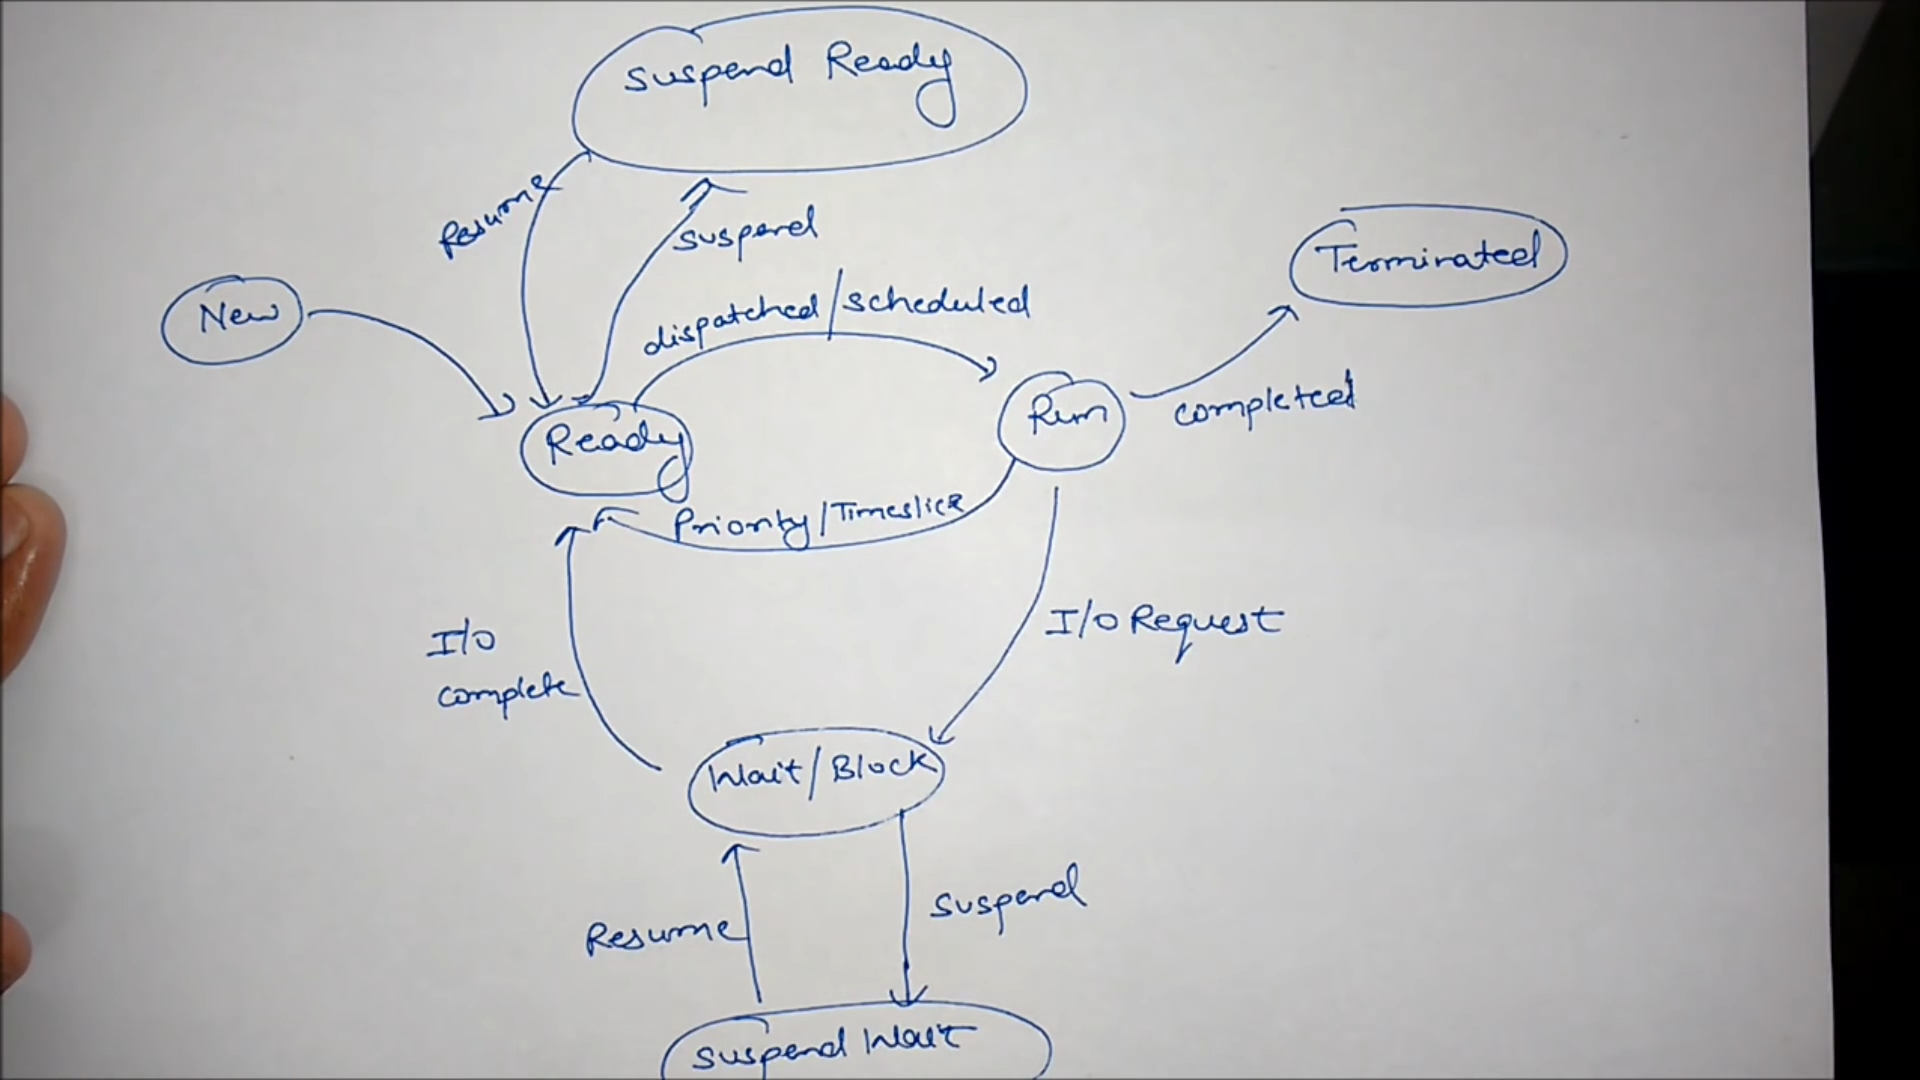 Suspend Ready
Resume
suspend
Terminated
New
dispatched/scheduled
Run
completed
Ready
Priority/Timeslice
I/O
complete
I/O Request
Wait/Block
Resume
suspend
suspend Wait